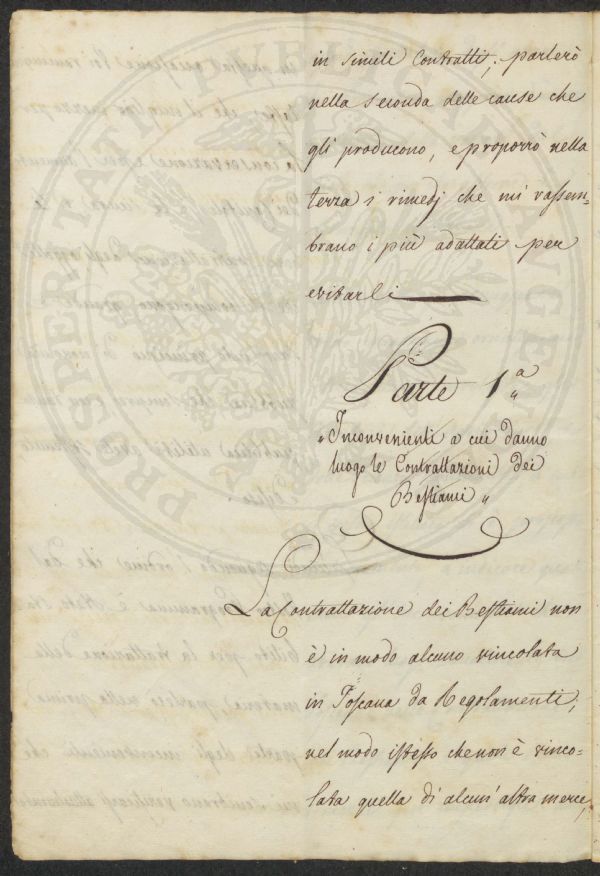 in simili Contratti; parlerò
nella seconda delle cause che
gli producono, e proporrò nella
terza i rimedj che mi rassem-
brano i più adattati per
evitarli
Parte 1ª
"Inconvenienti a cui danno
luogo le Contrattazioni dei
Bestiami"
La Contrattazione dei Bestiami non
è in modo alcuno vincolata
in Toscana da Regolamenti;
nel modo istesso che non è vinco-
lata quella di alcun' altra merce,
PROSPERITATI PUBLICAE AUGENDAE